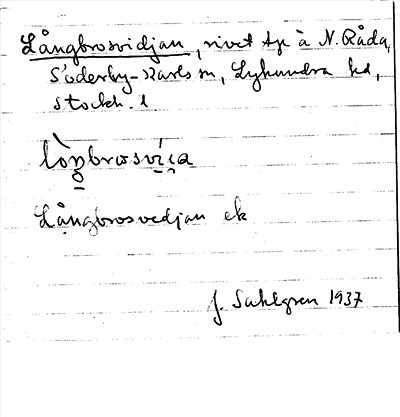 Långbrosvidjan, rivet tp å N. Råda,
Söderby-Karls sn, Lyhundra hd,
Stockh. l.
Långbrosvedjan ek
J. Sahlgren 1937